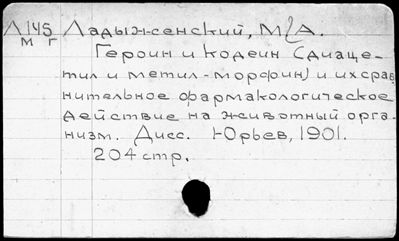 Л145 Ладыженский, М.А.
м г
Героин и кодеин (диаце-
тил и метил-морфин) и их срав
нительное фармакологическое
действие на животный орга-
низм. Дисс. Юрьев, 1901.
204 стр.